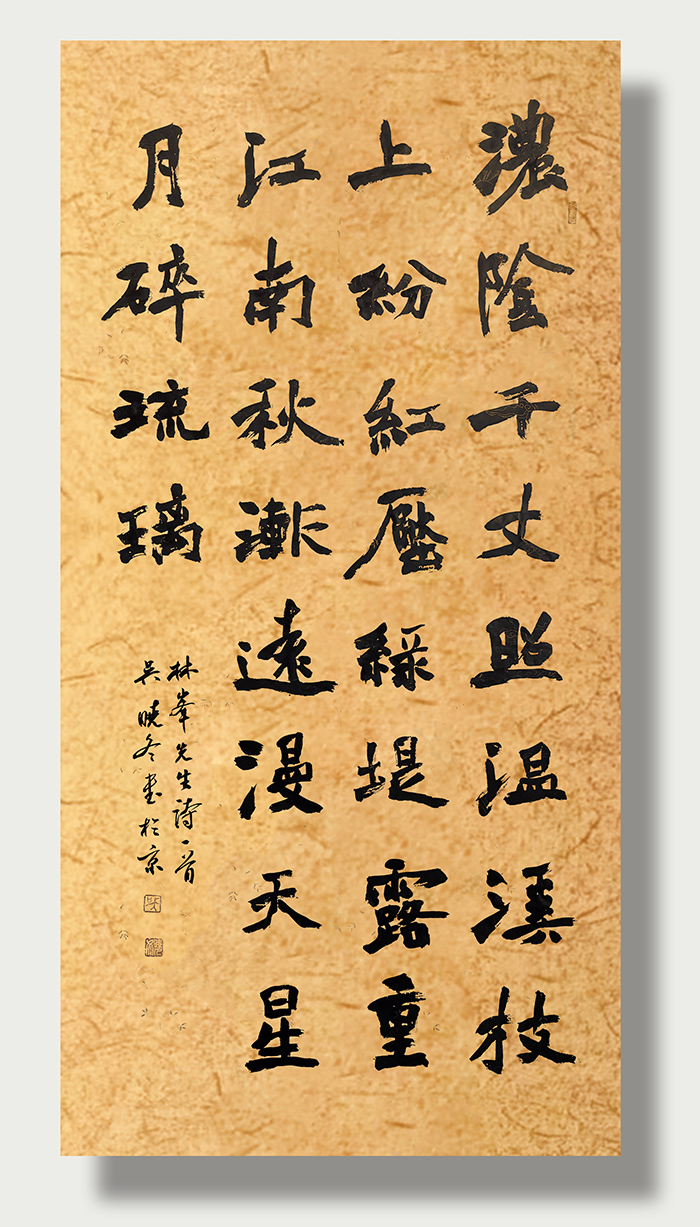 濃陰千丈照温溪枝
上紛紅壓綠堤露重
江南秋漸遠漫天星
月碎琉璃
林峯先生詩一首
吳曉冬書於京